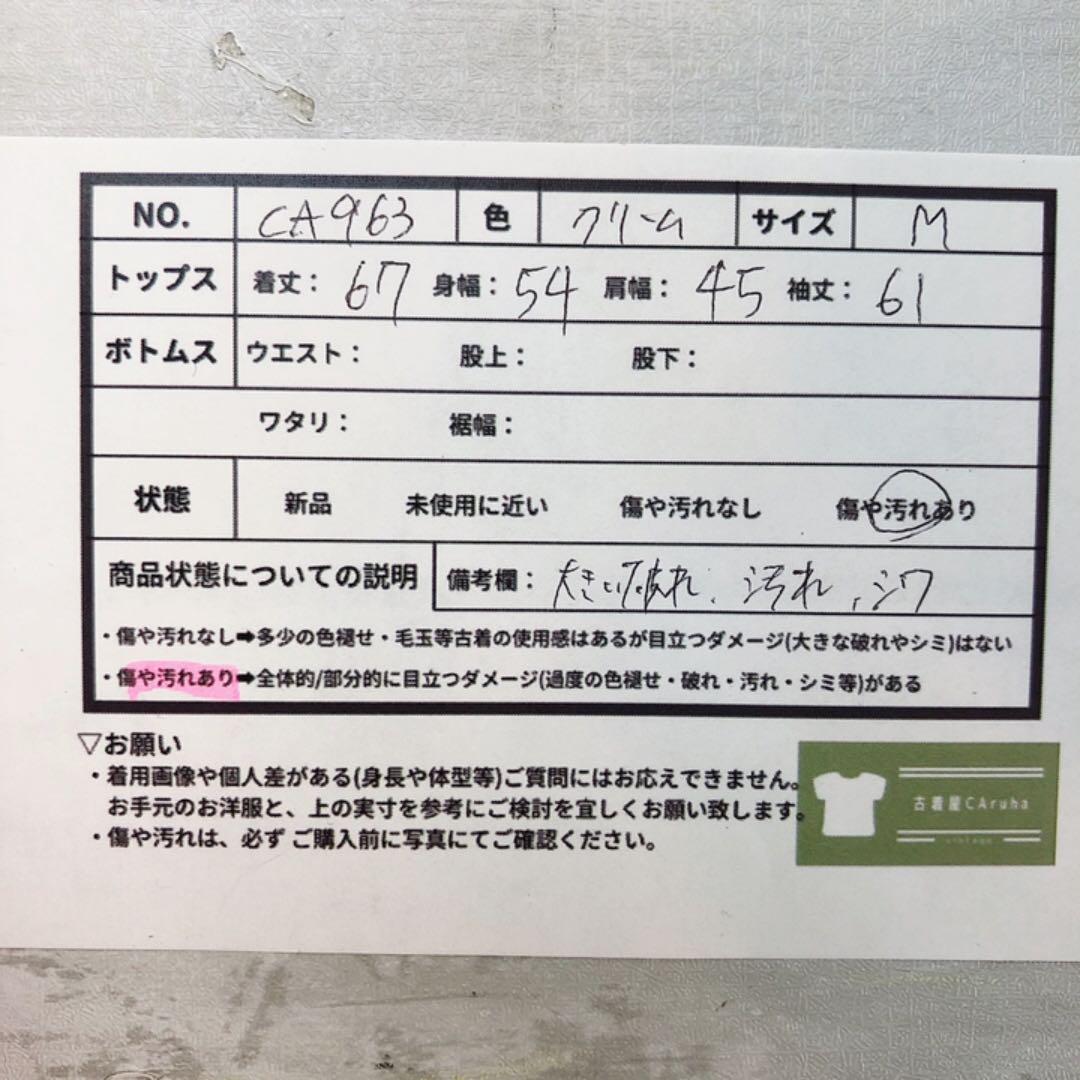 NO. CA963 色 クリーム サイズ M
トップス 着丈: 67 身幅: 54 肩幅: 45 袖丈: 61
ボトムス ウエスト: 股上: 股下:
ワタリ: 裾幅:
状態 新品 未使用に近い 傷や汚れなし 傷や汚れあり
商品状態についての説明 備考欄: 大きい破れ、汚れ、シワ
・傷や汚れなし➡多少の色褪せ・毛玉等古着の使用感はあるが目立つダメージ(大きな破れやシミ)はない
・傷や汚れあり➡全体的/部分的に目立つダメージ(過度の色褪せ・破れ・汚れ・シミ等)がある
▽お願い
・着用画像や個人差がある(身長や体型等)ご質問にはお応えできません。
お手元のお洋服と、上の実寸を参考にご検討を宜しくお願い致します。
・傷や汚れは、必ず ご購入前に写真にてご確認ください。
古着屋CAruha
vintage